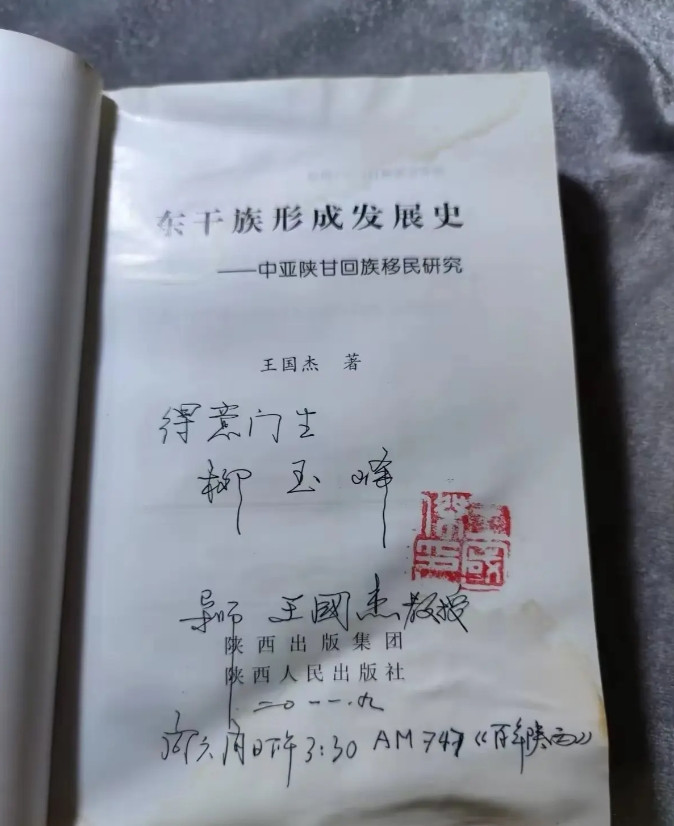 东干族形成发展史
——中亚陕甘回族移民研究
王国杰 著
得意门生
柳玉峰
导师 王國杰教授
陕西出版集团
陕西人民出版社
二〇一一.九
六 日下午3:30 AM 747《百年陕西》